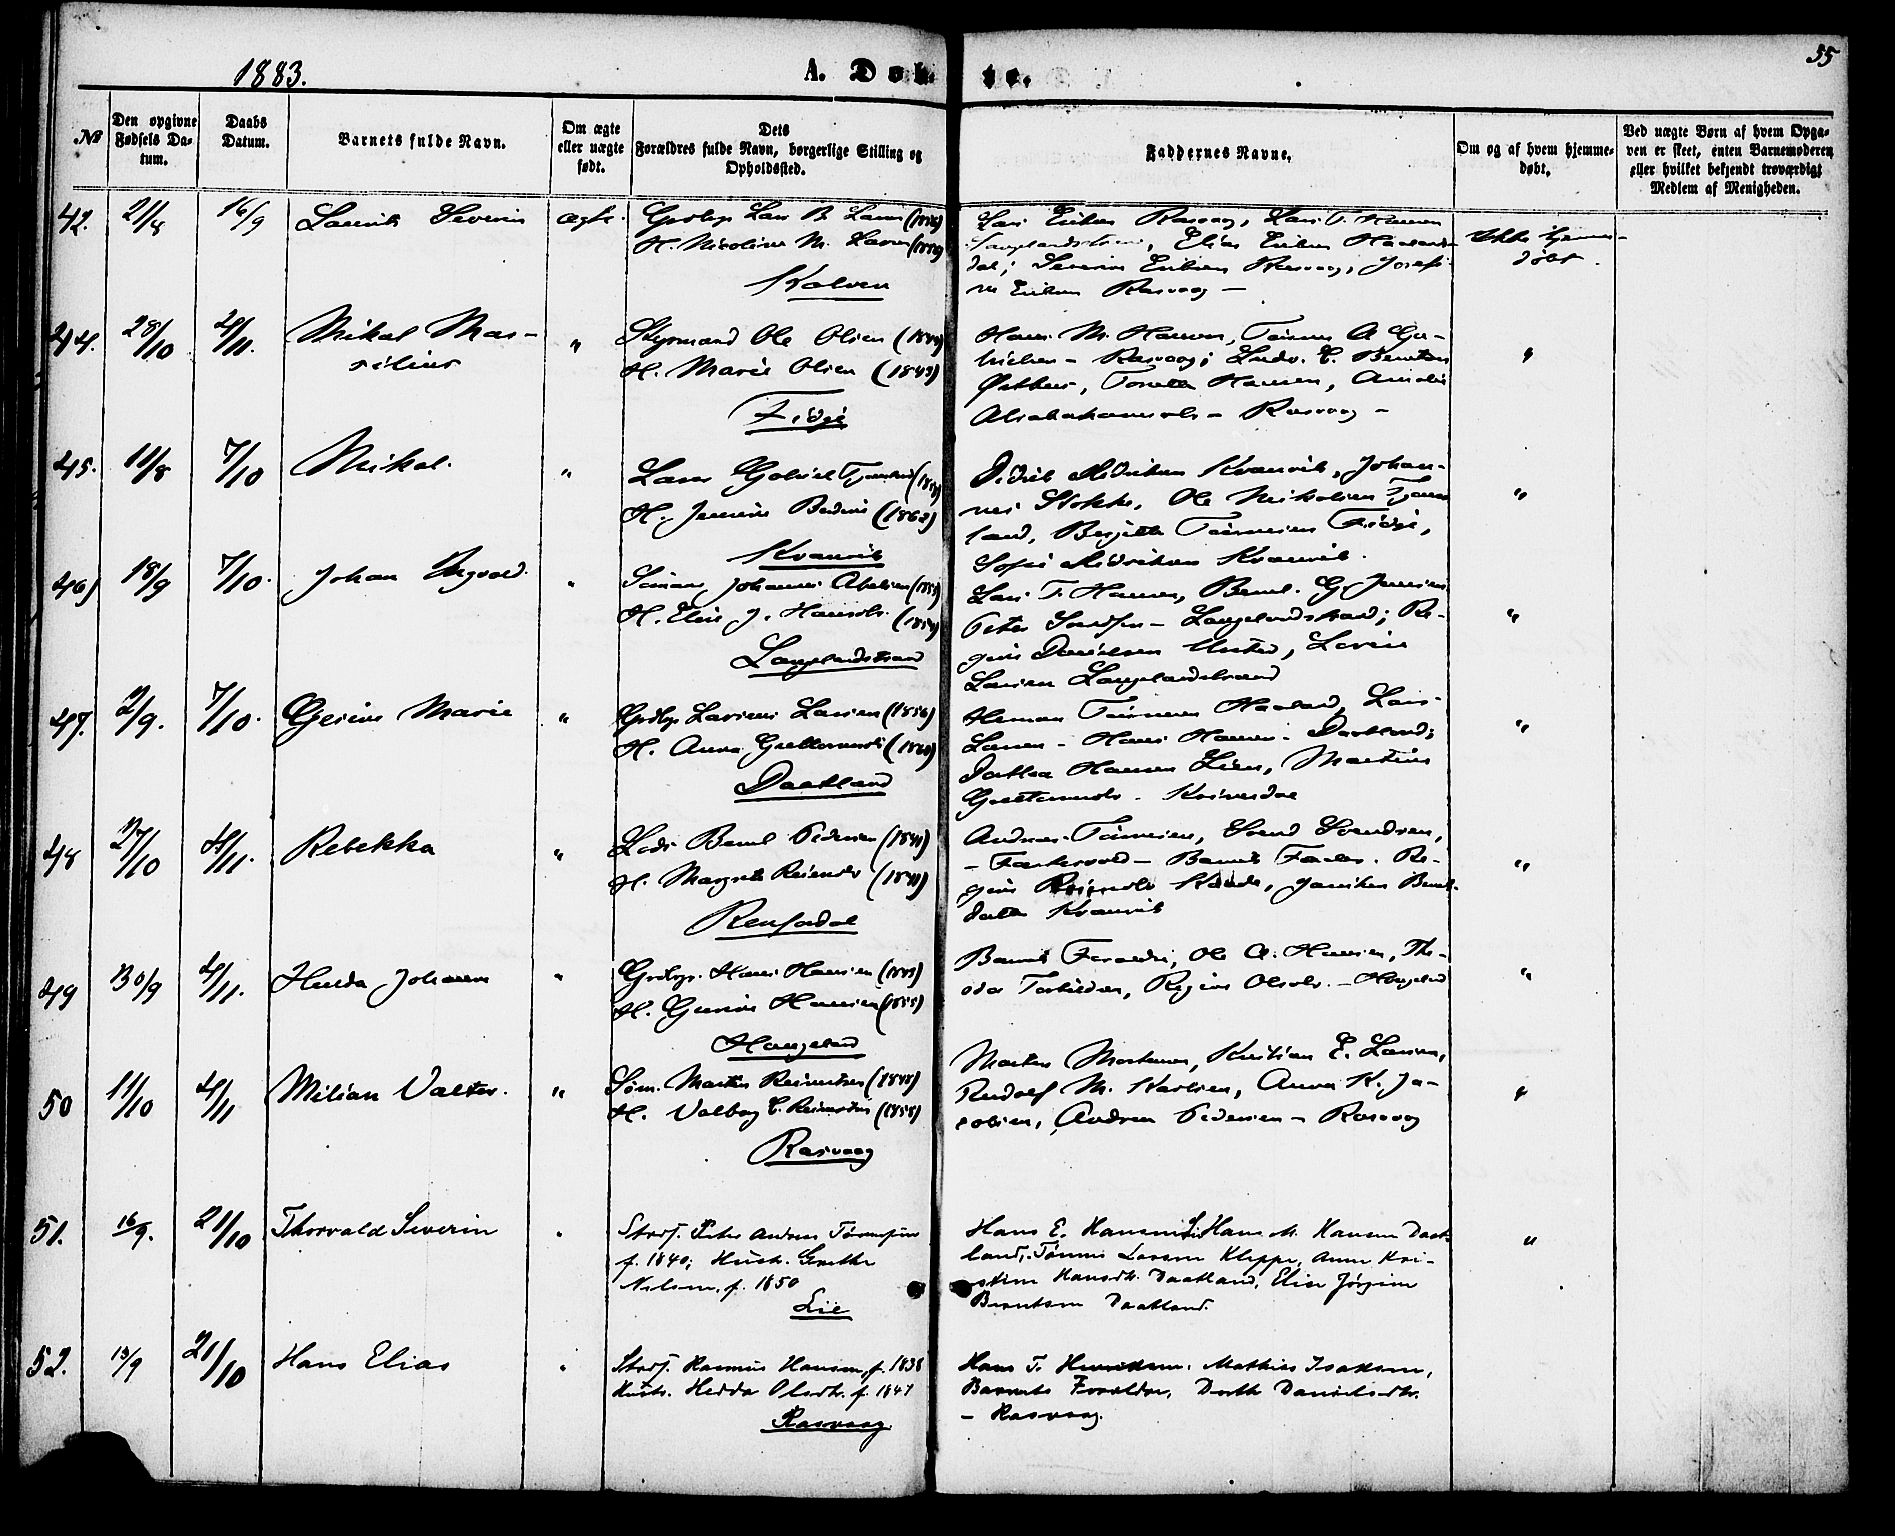 1883.
A. Døbte.
55
№
Den opgivne Fødsels Datum.
Daabs Datum.
Barnets fulde Navn.
Om ægte eller uægte født.
Dets Forældres fulde Navn, borgerlige Stilling og Opholdssted.
Faddernes Navne.
Om og af hvem hjemmedøbt.
Ved uægte Børn af hvem Opgaven er skeet, enten Barnemoderen eller hvilket bekjendt troværdigt Medlem af Menigheden.
42. 21/8 16/9 Laurits Severin ægte. Grdbgr Lars B. Larsen
H. Nicoline M. Larsen
Kalven
Lars Eriksen Rasvaag, Lars T. Hansen
Langelandsstrand, Elias Eriksen Haaland-
dal; Severin Eriksen Rasvaag, Josefi-
ne Eriksen Rasvaag —
Ikke hjemme-
døbt.
44. 28/10 4/11. Mikal Mas-
silius
" Styrmand Ole Olsen
H. Marie Olsen (1843)
Fidje
Hans M. Hansen, Tønnes A. Ga-
brielsen - Rasvaag; Ludv. E. Berntsen
Østhus, Tonette Hansen, Amalie
Abrahamsen - Rasvaag -
"
45. 11/8 7/10 Mikal.
" Lars Gabriel
H. Bertine (1862)
Kvanvik
Didrik Didriksen Kvanvik, Johan-
nes Stokke, Ole Mikalsen
land, Bergitte Tønnesen Fidje,
Sofie Didriksen Kvanvik.
"
46) 18/9 7/10. Johan Ingvald.
" Sømand Johannes Abelsen
H. Elise J. Hansdtr.
Langelandsstrand
Lars T. Hansen, Bernt G. Jensen
Peter - Langelandsstrand; Re-
gine Danielsen, Lovise
Larsen Langelandsstrand
"
47. 2/9. 7/10. Gesine Marie
" Grdbgr Larsen (1856)
H. Anna (1860)
Daatland
Herman Tønnesen Haaland, Lars
Larsen - Hans Hansen - Daatland;
Dorthea Hansen Lien, Martine
"
48 27/10 4/11. Rebekka
" Lods Bernt Pedersen (1841)
H. Margrete (1841)
Andreas Tønnesen, Svend Svendsen,
- Barnets Fader. Re-
gine, Janikke Bernt-
datter Kvanvik
"
49 30/9 4/11. Hulda Johanne
" Grdbgr. Hans Hansen
H. Hansen
Haugeland
Barnets Forældre, Ole A. Hansen, The-
odor Torkildsen, Regine Olsdtr. - Haugeland
"
50 11/10 4/11 Milian Valter.
" Søm. Martin Reinertsen (1848)
H. Valborg E. Reinertsen (1858)
Rasvaag
Morten Mortensen, Kristian E. Larsen,
Rudolf M. Karlsen, Anna K. Ja-
cobsen, Andrea Pedersen - Rasvaag
"
51. 16/9. 21/10 Thorvald Severin
" Strdf. Peter Andreas Tønnesen
f. 1840; Hust. Grethe
Nilsen, f. 1850
Lie
Hans E. Hansen Lie, Hans M. Hansen Daat-
land, Tønnes Larsen Kleppe, Anne Kri-
stine Hansdtr. Daatland, Elise Jørgine
Berntsen Daatland.
"
52. 13/9 21/10 Hans Elias
" Strdf. Rasmus Hansen, f. 1838
Hust. Hedda Olsdtr. f. 1847
Rasvaag.
Hans T. Henriksen, Mathias Isaksen,
Barnets Forældre, Dorth Danielsdtr.
- Rasvaag.